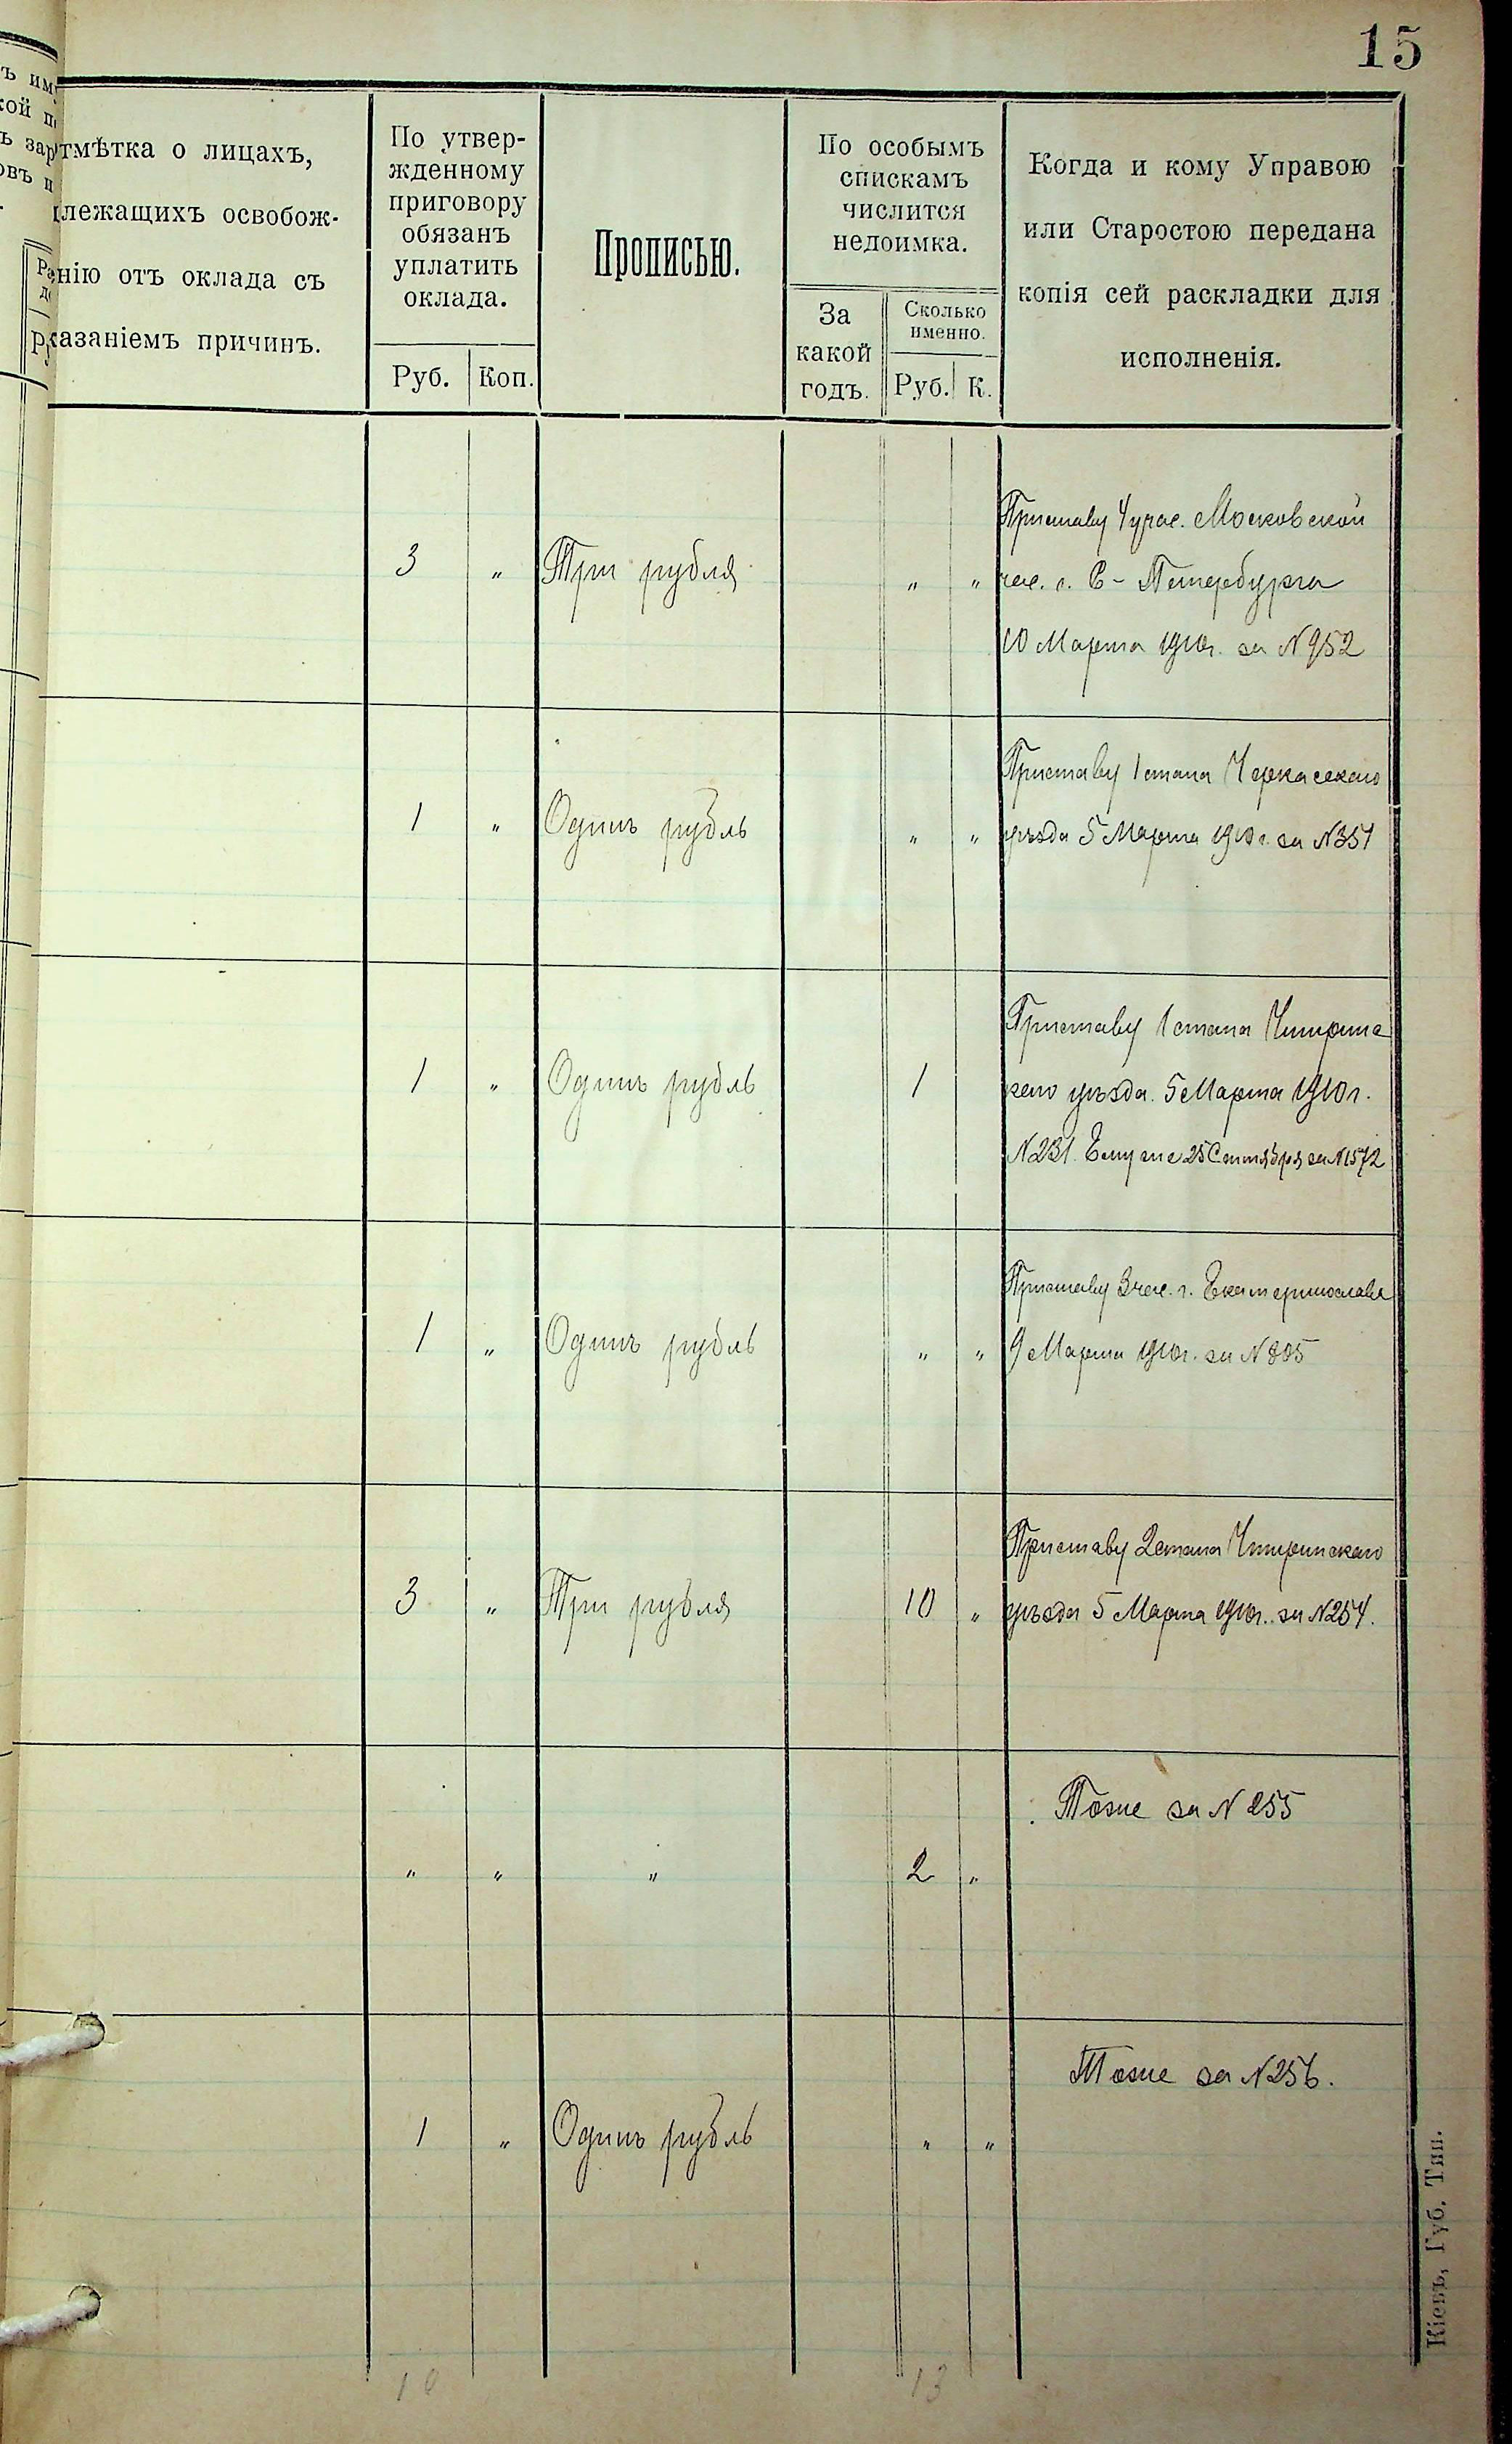 15
тмѣтка о лицахъ,
лежащихъ освобож-
нію отъ оклада съ
казаніемъ причинъ.
По утвер-
жденному
приговору
обязанъ
уплатить
оклада.
Руб. Коп.
Прописью.
По особымъ
спискамъ
числится
недоимка.
За
какой
годъ.
Сколько
именно.
Руб. К.
Когда и кому Управою
или Старостою передана
копія сей раскладки для
исполненія.
Приставу 4 учас. Московской
3 " Три рубля " " час. г. С-Петербурга
10 Марта 1910г. за N 952
Приставу 1 стана Черкасскаго
1 " Одинъ рубль " " уѣзда 5 Марта 1910г. за N 351
Приставу 1 стана Чигринс
1 " Одинъ рубль 1 каго уѣзда. 5 Марта 1910г.
N 231. Ему же 25 Сентября за N 1572
Приставу 3 час. г. Екатеринослава
1 " Одинъ рубль " " 9 Марта 1910г. за N 805
Приставу 2 стана Чигринскаго
3 " Три рубля 10 " уѣзда 5 Марта 1910г. за N 254.
Тоже за N 255
" " " 2 "
Тоже за N 256.
1 " Одинъ рубль " "
10 13
Кіевъ, Губ. Тип.